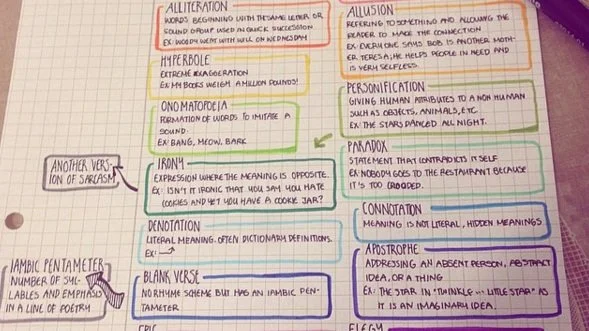 ALLITERATION
WORDS BEGINNING WITH THE SAME LETTER OR
SOUND GROUP USED IN QUICK SUCCESSION
EX: WOODY WENT WITH WILL ON WEDNESDAY
HYPERBOLE
EXTREME EXAGGERATION
EX: MY BOOKS WEIGH A MILLION POUNDS!
ONOMATOPOEIA
FORMATION OF WORDS TO IMITATE A
SOUND.
EX: BANG, MEOW, BARK
ANOTHER VERS-
ION OF SARCASM
IRONY
EXPRESSION WHERE THE MEANING IS OPPOSITE.
EX: ISN'T IT IRONIC THAT YOU SAY YOU HATE
COOKIES AND YET YOU HAVE A COOKIE JAR?
DENOTATION
LITERAL MEANING. OFTEN DICTIONARY DEFINITIONS.
EX:
IAMBIC PENTAMETER
NUMBER OF SYL-
LABLES AND EMPHASIS
IN A LINE OF POETRY
BLANK VERSE
NO RHYME SCHEME BUT HAS AN IAMBIC PEN-
TAMETER
EPIC
ALLUSION
REFERING TO SOMETHING AND ALLOWING THE
READER TO MAKE THE CONNECTION
EX: EVERYONE SAYS BOB IS ANOTHER MOTH-
ER TERESA, HE HELPS PEOPLE IN NEED AND
IS VERY SELFLESS.
PERSONIFICATION
GIVING HUMAN ATTRIBUTES TO A NON HUMAN
SUCH AS OBJECTS, ANIMALS, ETC.
EX: THE STARS DANCED ALL NIGHT.
PARADOX
STATEMENT THAT CONTRADICTS ITSELF
EX: NOBODY GOES TO THE RESTAURANT BECAUSE
IT'S TOO CROWDED.
CONNOTATION
MEANING IS NOT LITERAL, HIDDEN MEANINGS
APOSTROPHE
ADDRESSING AN ABSENT PERSON, ABSTRACT
IDEA, OR A THING
EX: THE STAR IN "TWINKLE... LITTLE STAR" AS
IT IS AN IMAGINARY IDEA.
ELEGY